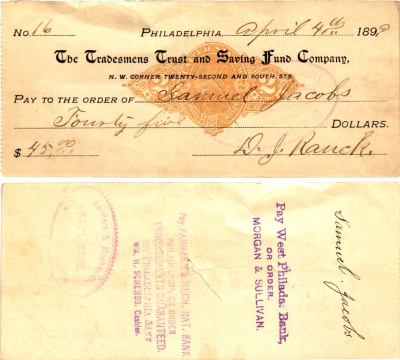 No. 16 Philadelphia, April 4th 1899
The Tradesmens Trust and Saving Fund Company,
N. W. CORNER TWENTY-SECOND AND SOUTH STS.
PAY TO THE ORDER OF Samuel Jacobs
Fourty five DOLLARS.
$ 45.00 D. J. Rauck.
Samuel Jacobs
Pay West Philada. Bank,
OR ORDER.
MORGAN & SULLIVAN.
Pay FARMERS & MECH. NAT. BANK
PHILADELPHIA OR ORDER
ENDORSEMENTS GUARANTEED.
WEST PHILADELPHIA BANK
WM. H. Cashier.